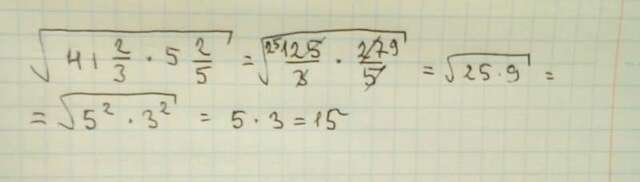 √(41 2/3 · 5 2/5) = √(²⁵125/3 · 27⁹/5) = √(25·9) =
= √(5² · 3²) = 5 · 3 = 15